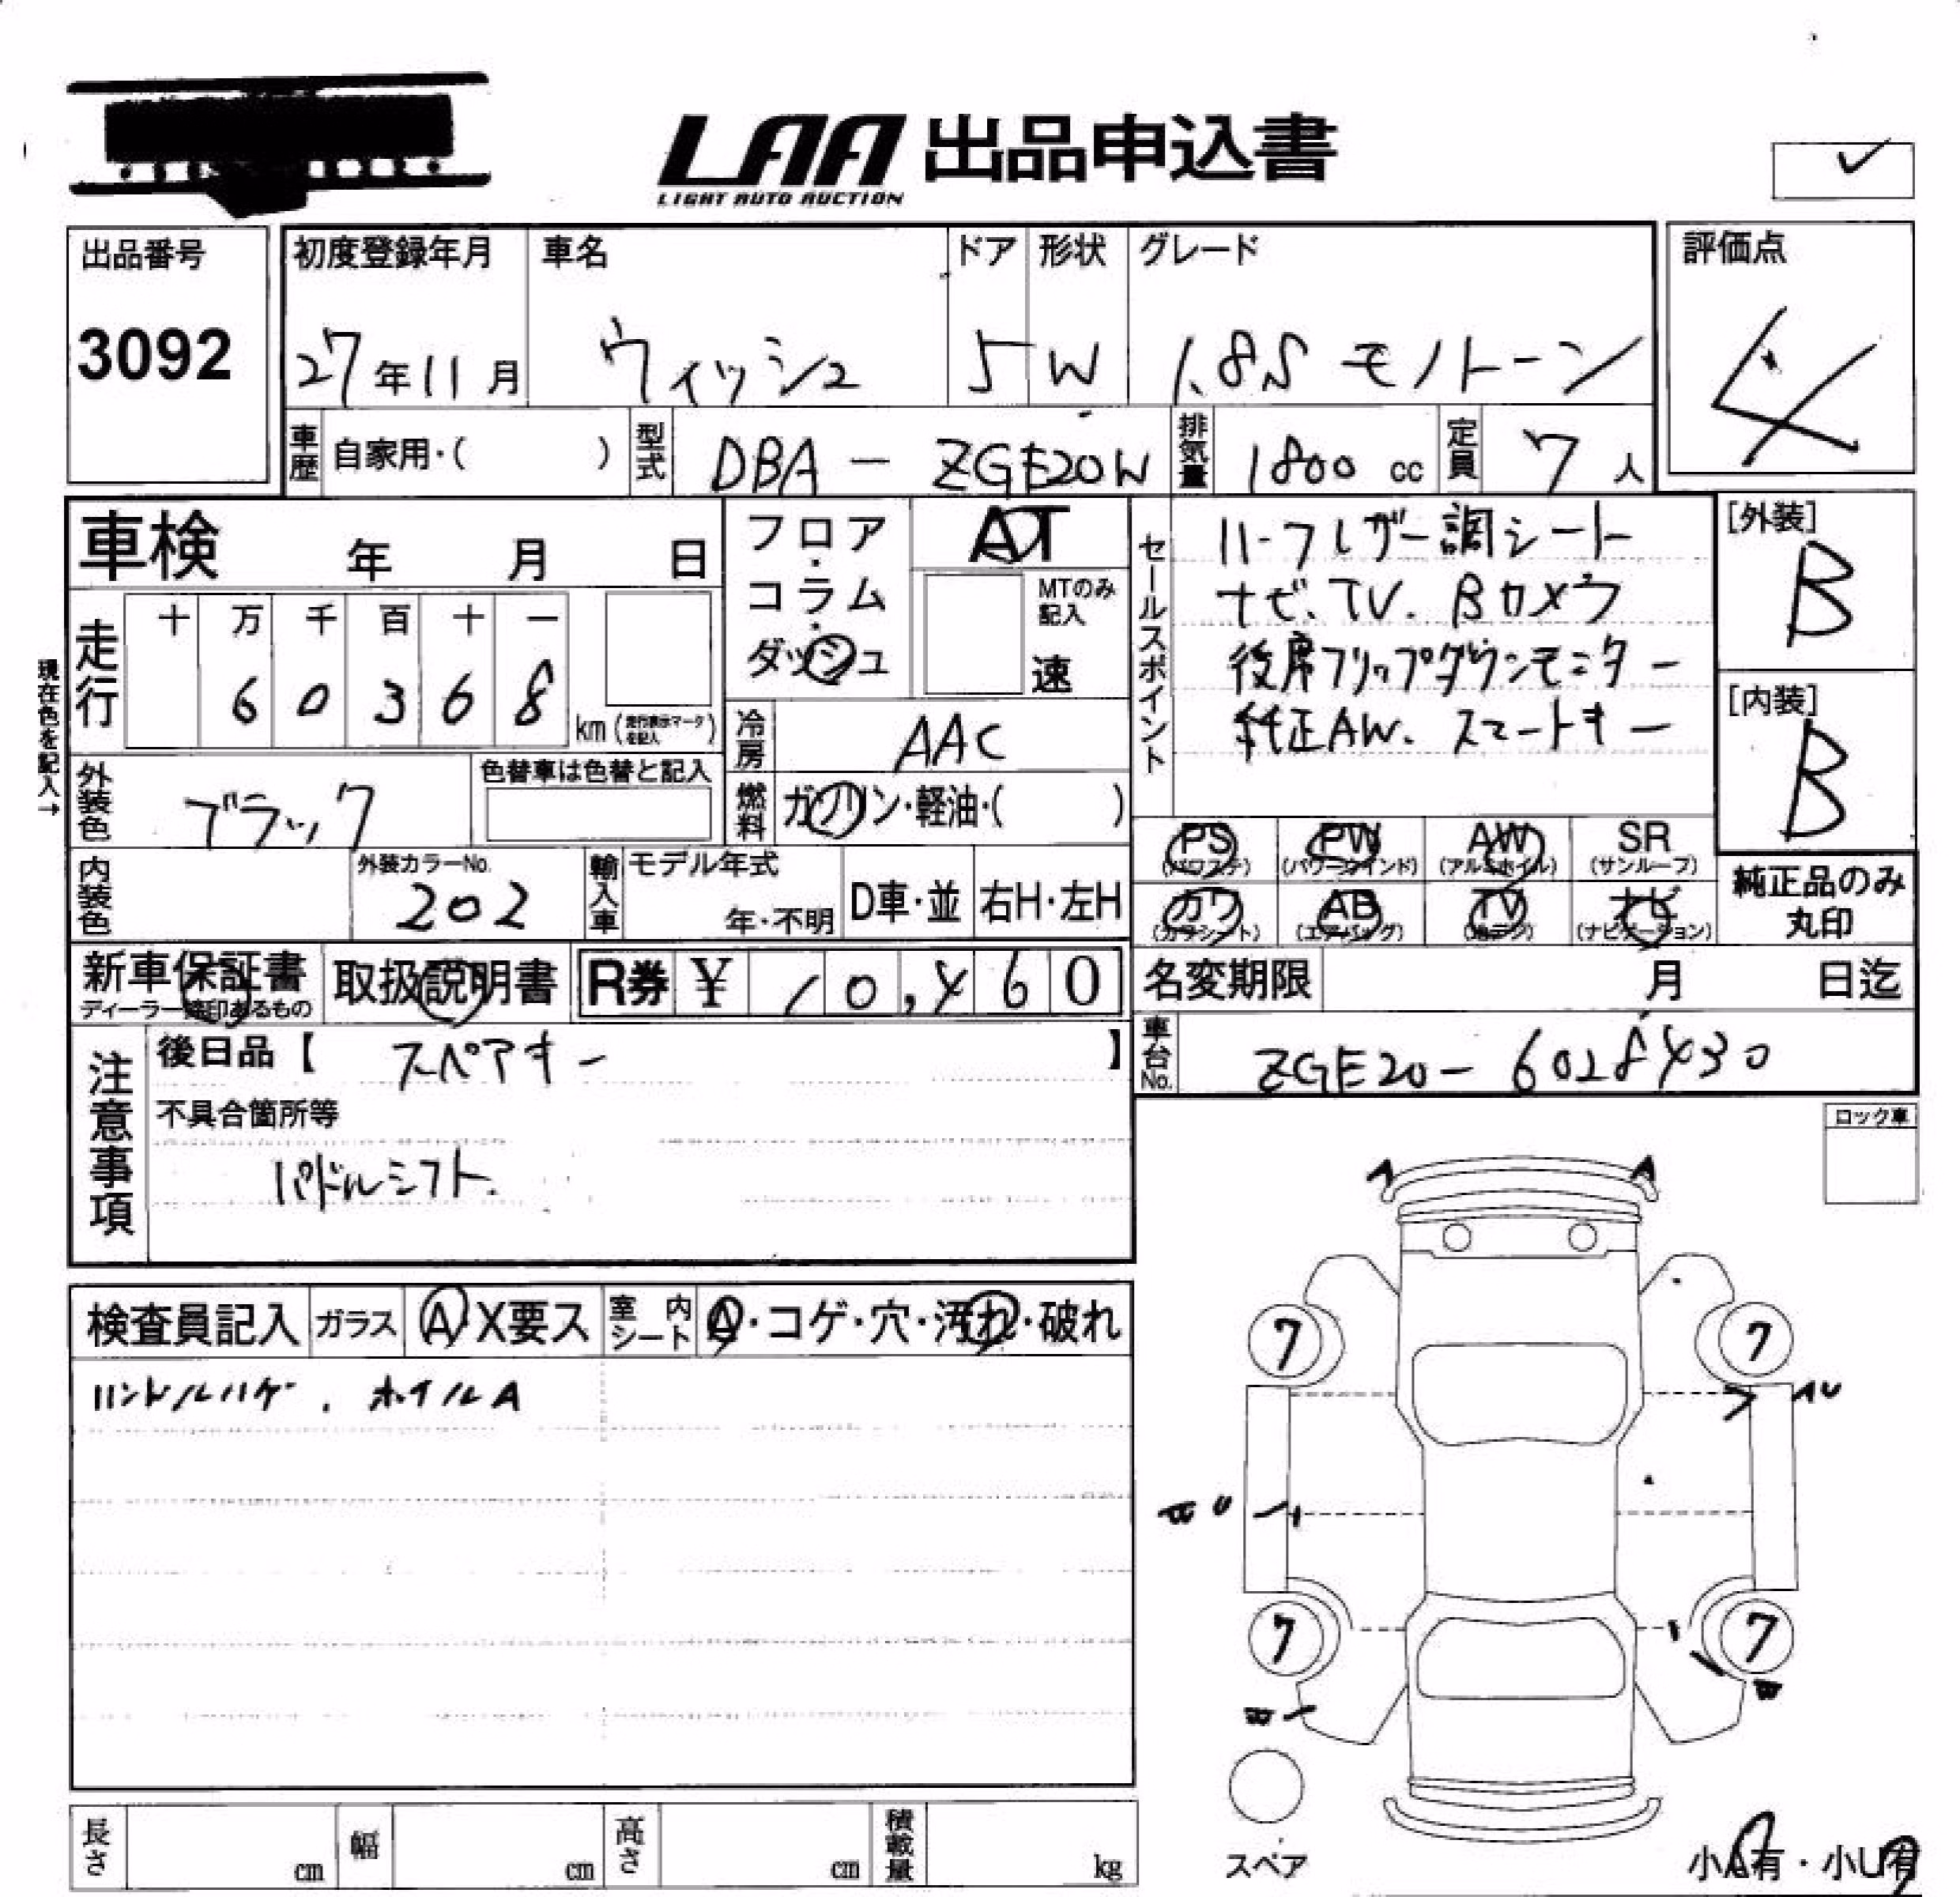 LAA 出品申込書
LIGHT AUTO AUCTION
✓
出品番号
3092
初度登録年月
27年11月
車名
ウィッシュ
ドア
5
形状
W
グレード
1.8S モノトーン
評価点
4
車歴 自家用・( )
型式 DBA - ZGE20W
排気量 1800 cc
定員 7 人
車検 年 月 日
走行
十 万 千 百 十 一
6 0 3 6 8
km (走行表示マークを記入)
現在色を記入→
フロア・コラム・ダッシュ
AT
MTのみ記入
速
冷房 AAC
燃料 ガソリン・軽油・( )
セールスポイント
ハーフレザー調シート
ナビ、TV. Bカメラ
後席フリップダウンモニター
純正AW. スマートキー
[外装]
B
[内装]
B
外装色 ブラック
色替車は色替と記入
内装色
外装カラーNo.
202
輸入車 モデル年式
年・不明
D車・並
右H・左H
PS (パワステ)
PW (パワーウインド)
AW (アルミホイル)
SR (サンルーフ)
カワ (カワシート)
AB (エアバッグ)
TV (地デジ)
ナビ (ナビゲーション)
純正品のみ丸印
新車保証書
ディーラー捺印あるもの
取扱説明書
R券 ¥ 10,460
名変期限 月 日迄
車台No. ZGE20-6028430
注意事項
後日品【 スペアキー 】
不具合箇所等
パドルシフト.
ロック車
検査員記入
ガラス A・X要ス
室内シート A・コゲ・穴・汚れ・破れ
ハンドルハゲ. ホイルA
A
A
7
7
AU
7
7
スペア
小A有・小U有
長さ cm
幅 cm
高さ cm
積載量 kg